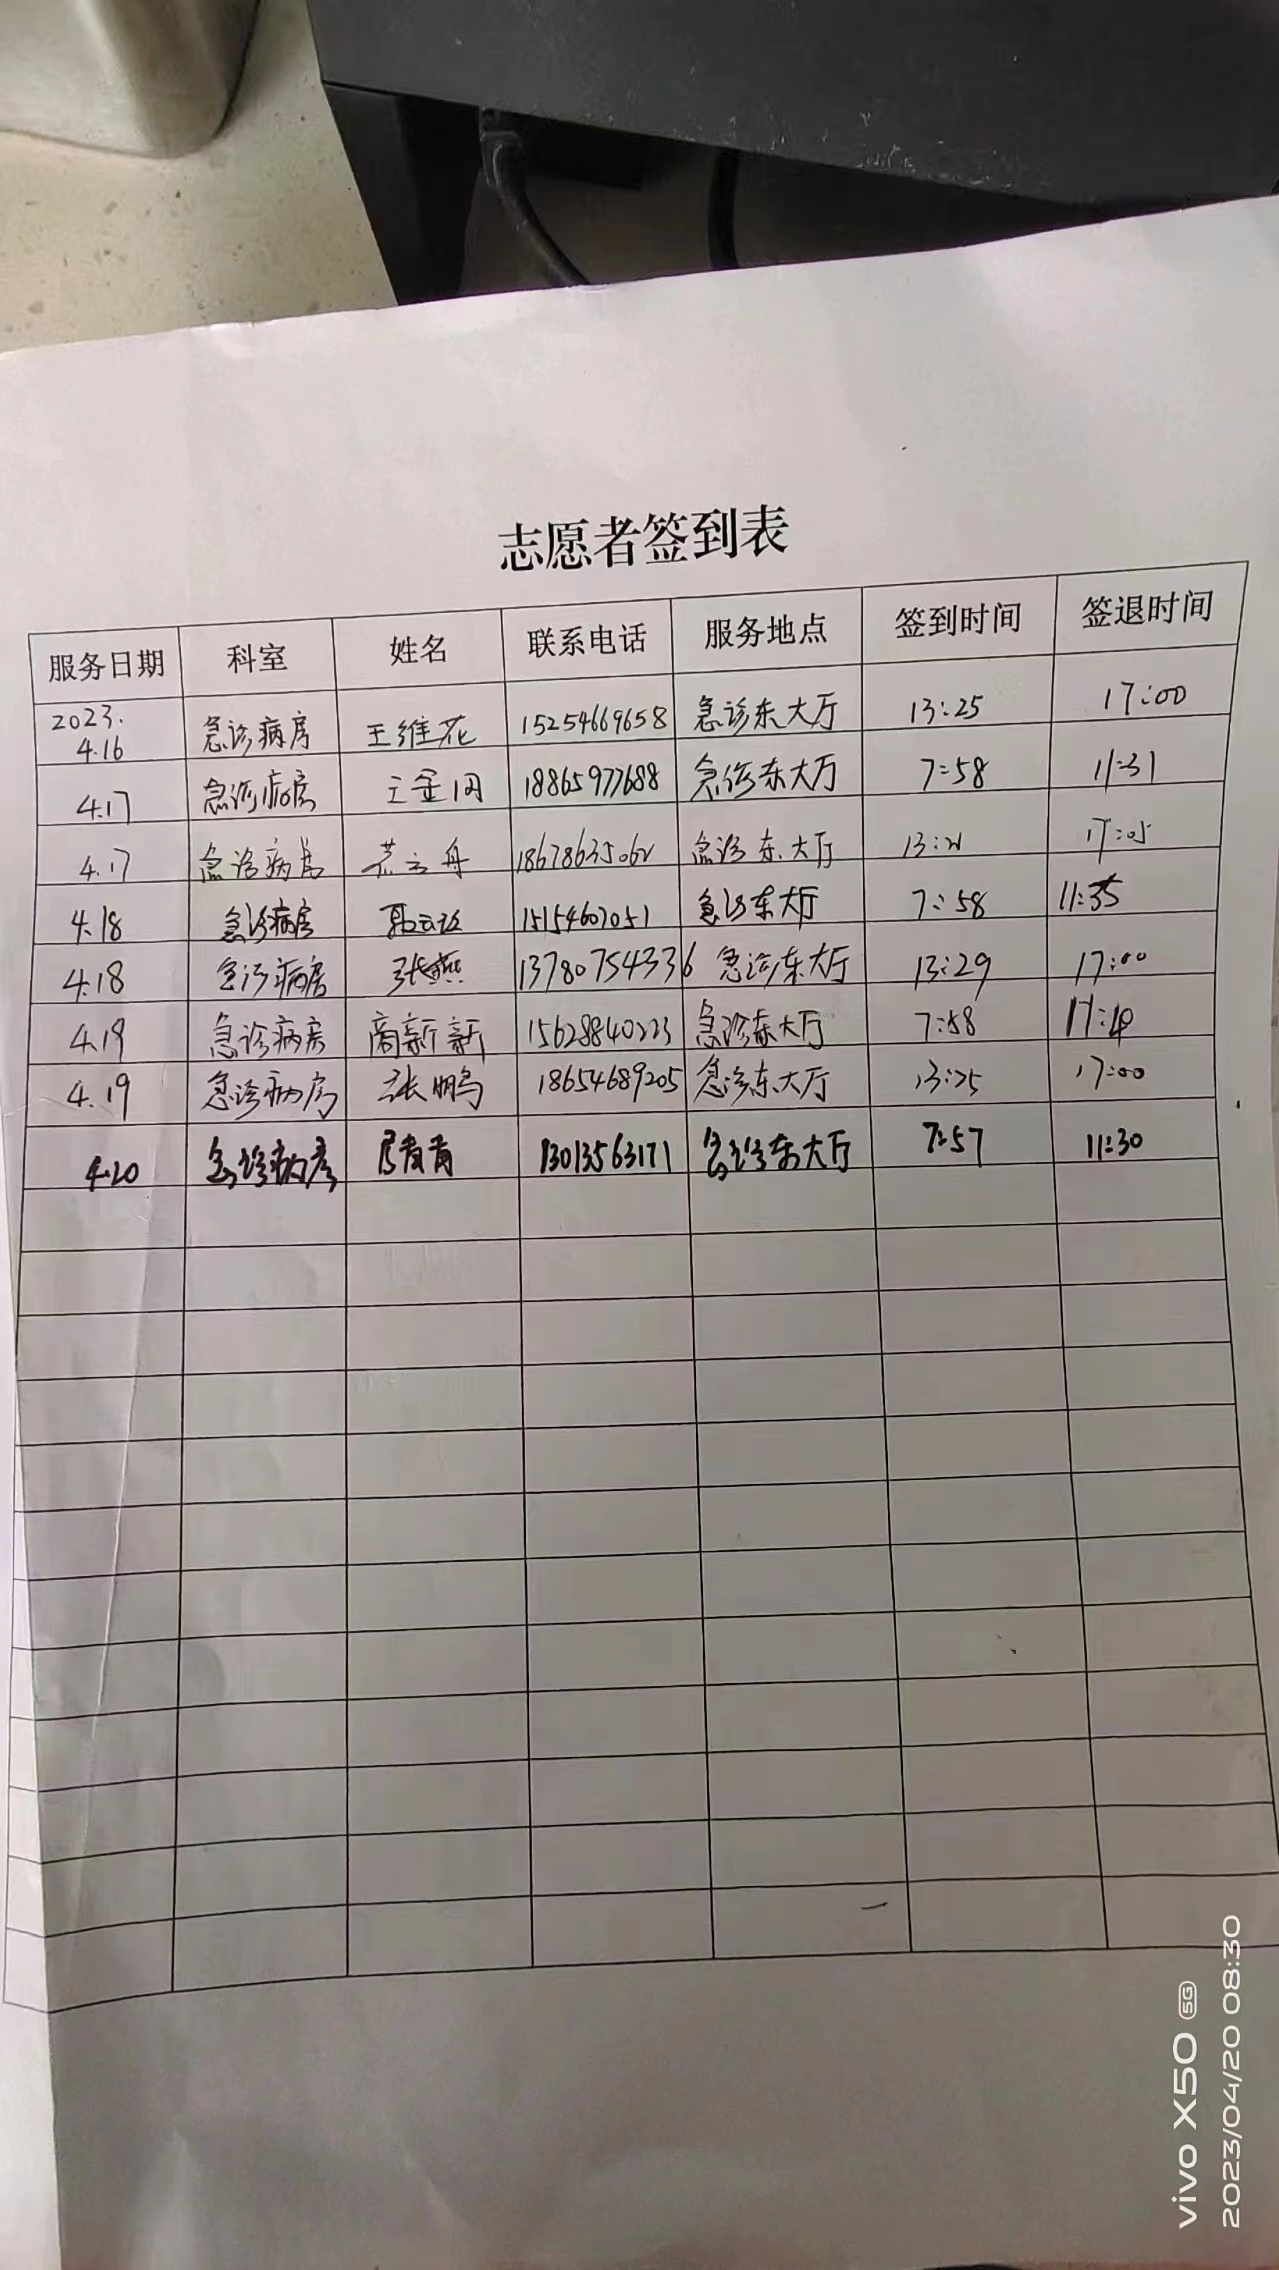 志愿者签到表
服务日期 科室 姓名 联系电话 服务地点 签到时间 签退时间
2023.
4.16 急诊病房 王维花 15254669658 急诊东大厅 13:25 17:00
4.17 急诊病房 18865977688 急诊东大厅 7:58 11:31
4.17 急诊病房 急诊东大厅 17:05
4.18 急诊病房 15154607051 急诊东大厅 7:58 11:35
4.18 急诊病房 张燕 13780754336 急诊东大厅 13:29 17:00
4.19 急诊病房 商新新 15628840223 急诊东大厅 7:58
4.19 急诊病房 张鹏 18654689205 急诊东大厅 13:25 17:00
4.20 急诊病房 13013563171 急诊东大厅 7:57 11:30
vivo X50 5G
2023/04/20 08:30